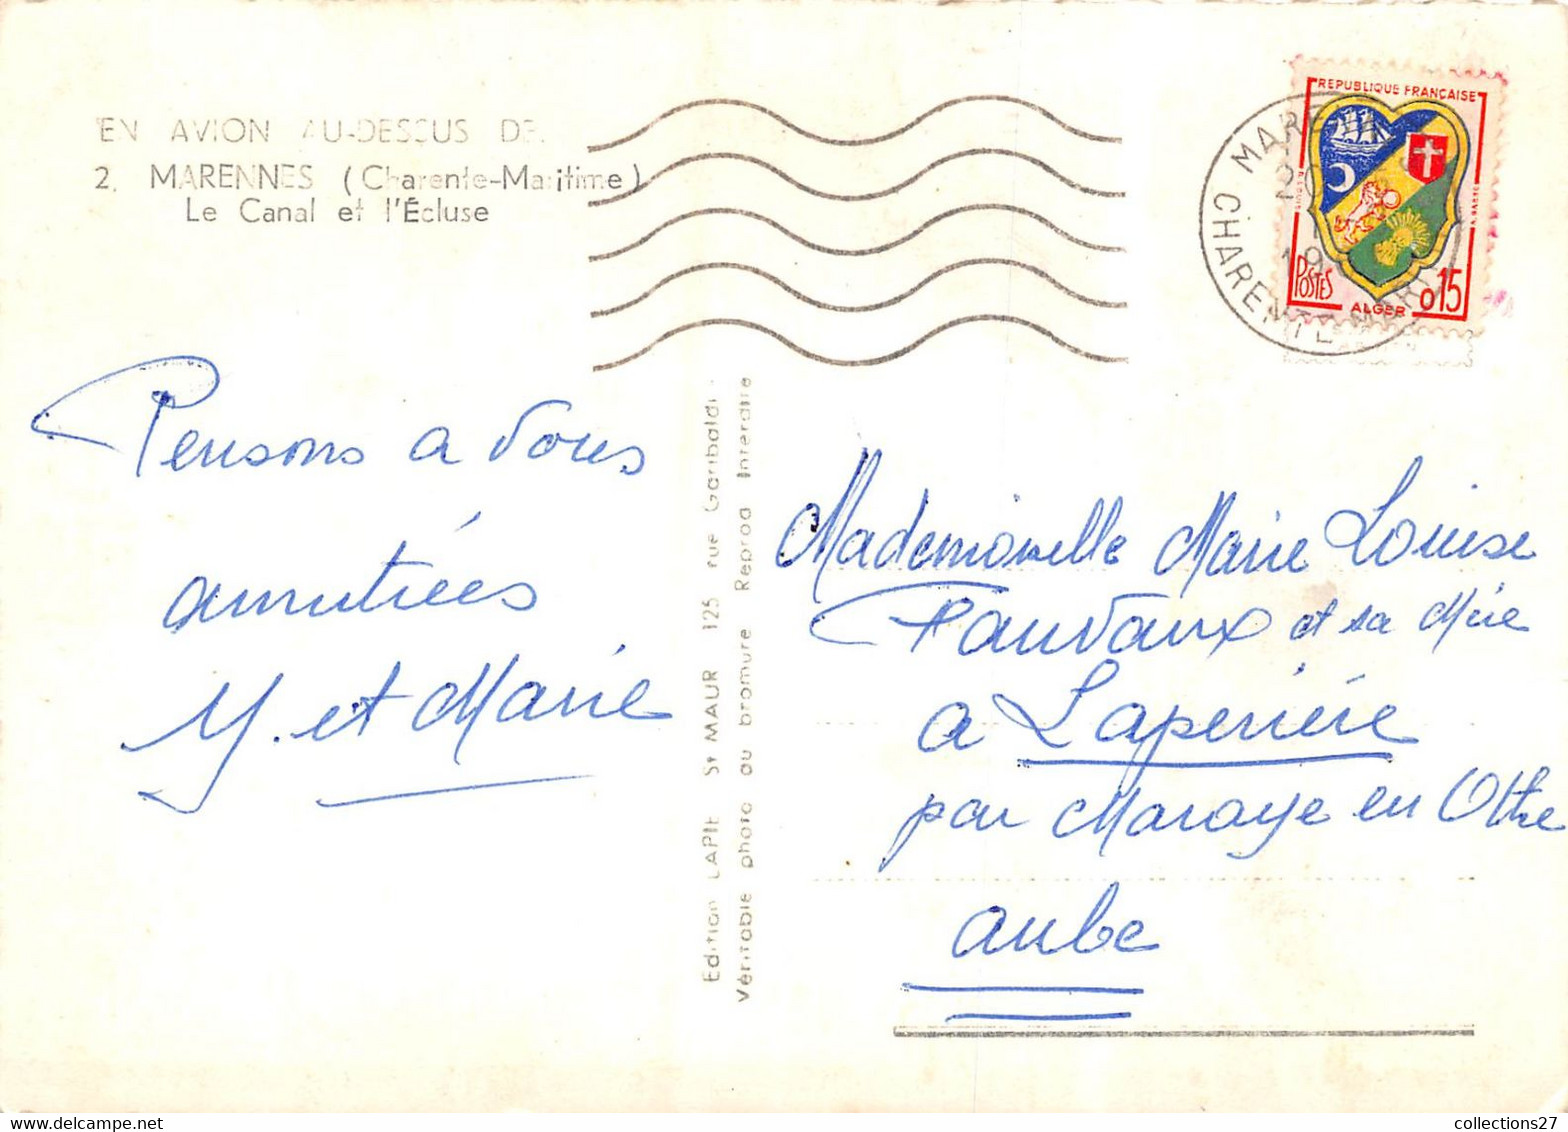 EN AVION AU-DESSUS DE.
2. MARENNES (Charente-Maritime)
Le Canal et l'Écluse
Pensons a vous
amitiées
Y. et Marie
Edition LAPIE St MAUR 125 rue Garibaldi
Véritable photo au bromure Reprod Interdite
REPUBLIQUE FRANÇAISE
POSTES
ALGER
0,15
CHARENTE
Mademoiselle Marie Louise
Pauvaux et sa Mère
a Laperrière
par Maraye en Othe
aube
collections27